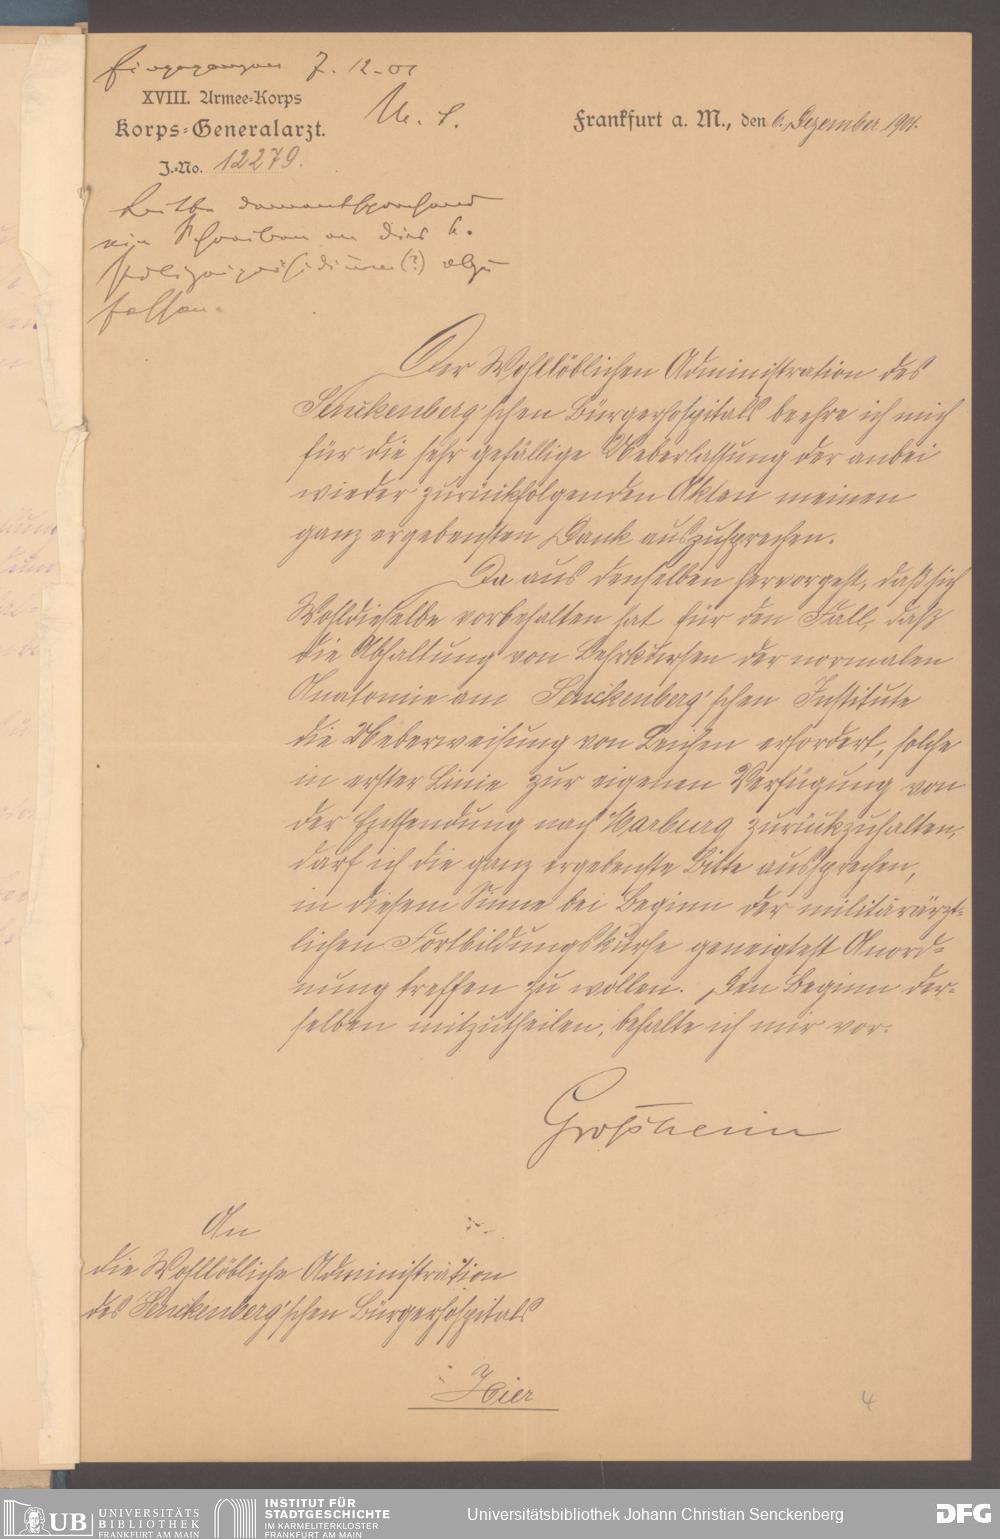 Eingegangen 7. 12. 01
XVIII. Armee-Korps
Korps-Generalarzt.
J.-No. 12279.
Frankfurt a. M., den 6. Dezember 1901.
Bitte dementsprechend
ein Schreiben an das k.
Polizeipräsidium (?) abzu-
fassen.
Der Wohllöblichen Administration des
Senckenberg'schen Bürgerhospitals beehre ich mich
für die sehr gefällige Ueberlassung der anbei
wieder zurückfolgenden Akten meinen
ganz ergebensten Dank auszusprechen.
Da aus denselben hervorgeht, daß sich
Wohldieselbe vorbehalten hat für den Fall, daß
die Abhaltung von Lehrkursen der normalen
Anatomie am Senckenberg'schen Institute
die Ueberweisung von Leichen erfordert, solche
in erster Linie zur eigenen Verfügung von
der Entsendung nach Marburg zurückzuhalten,
darf ich die ganz ergebenste Bitte aussprechen,
in diesem Sinne bei Beginn der militärärzt-
lichen Fortbildungskurse geneigtest Anord-
nung treffen zu wollen. Den Beginn der-
selben mitzutheilen, behalte ich mir vor.
Großheim
An
die Wohllöbliche Administration
des Senckenberg'schen Bürgerhospitals
Hier
4
UB UNIVERSITÄTS
BIBLIOTHEK
FRANKFURT AM MAIN
INSTITUT FÜR
STADTGESCHICHTE
IM KARMELITERKLOSTER
FRANKFURT AM MAIN
Universitätsbibliothek Johann Christian Senckenberg
DFG